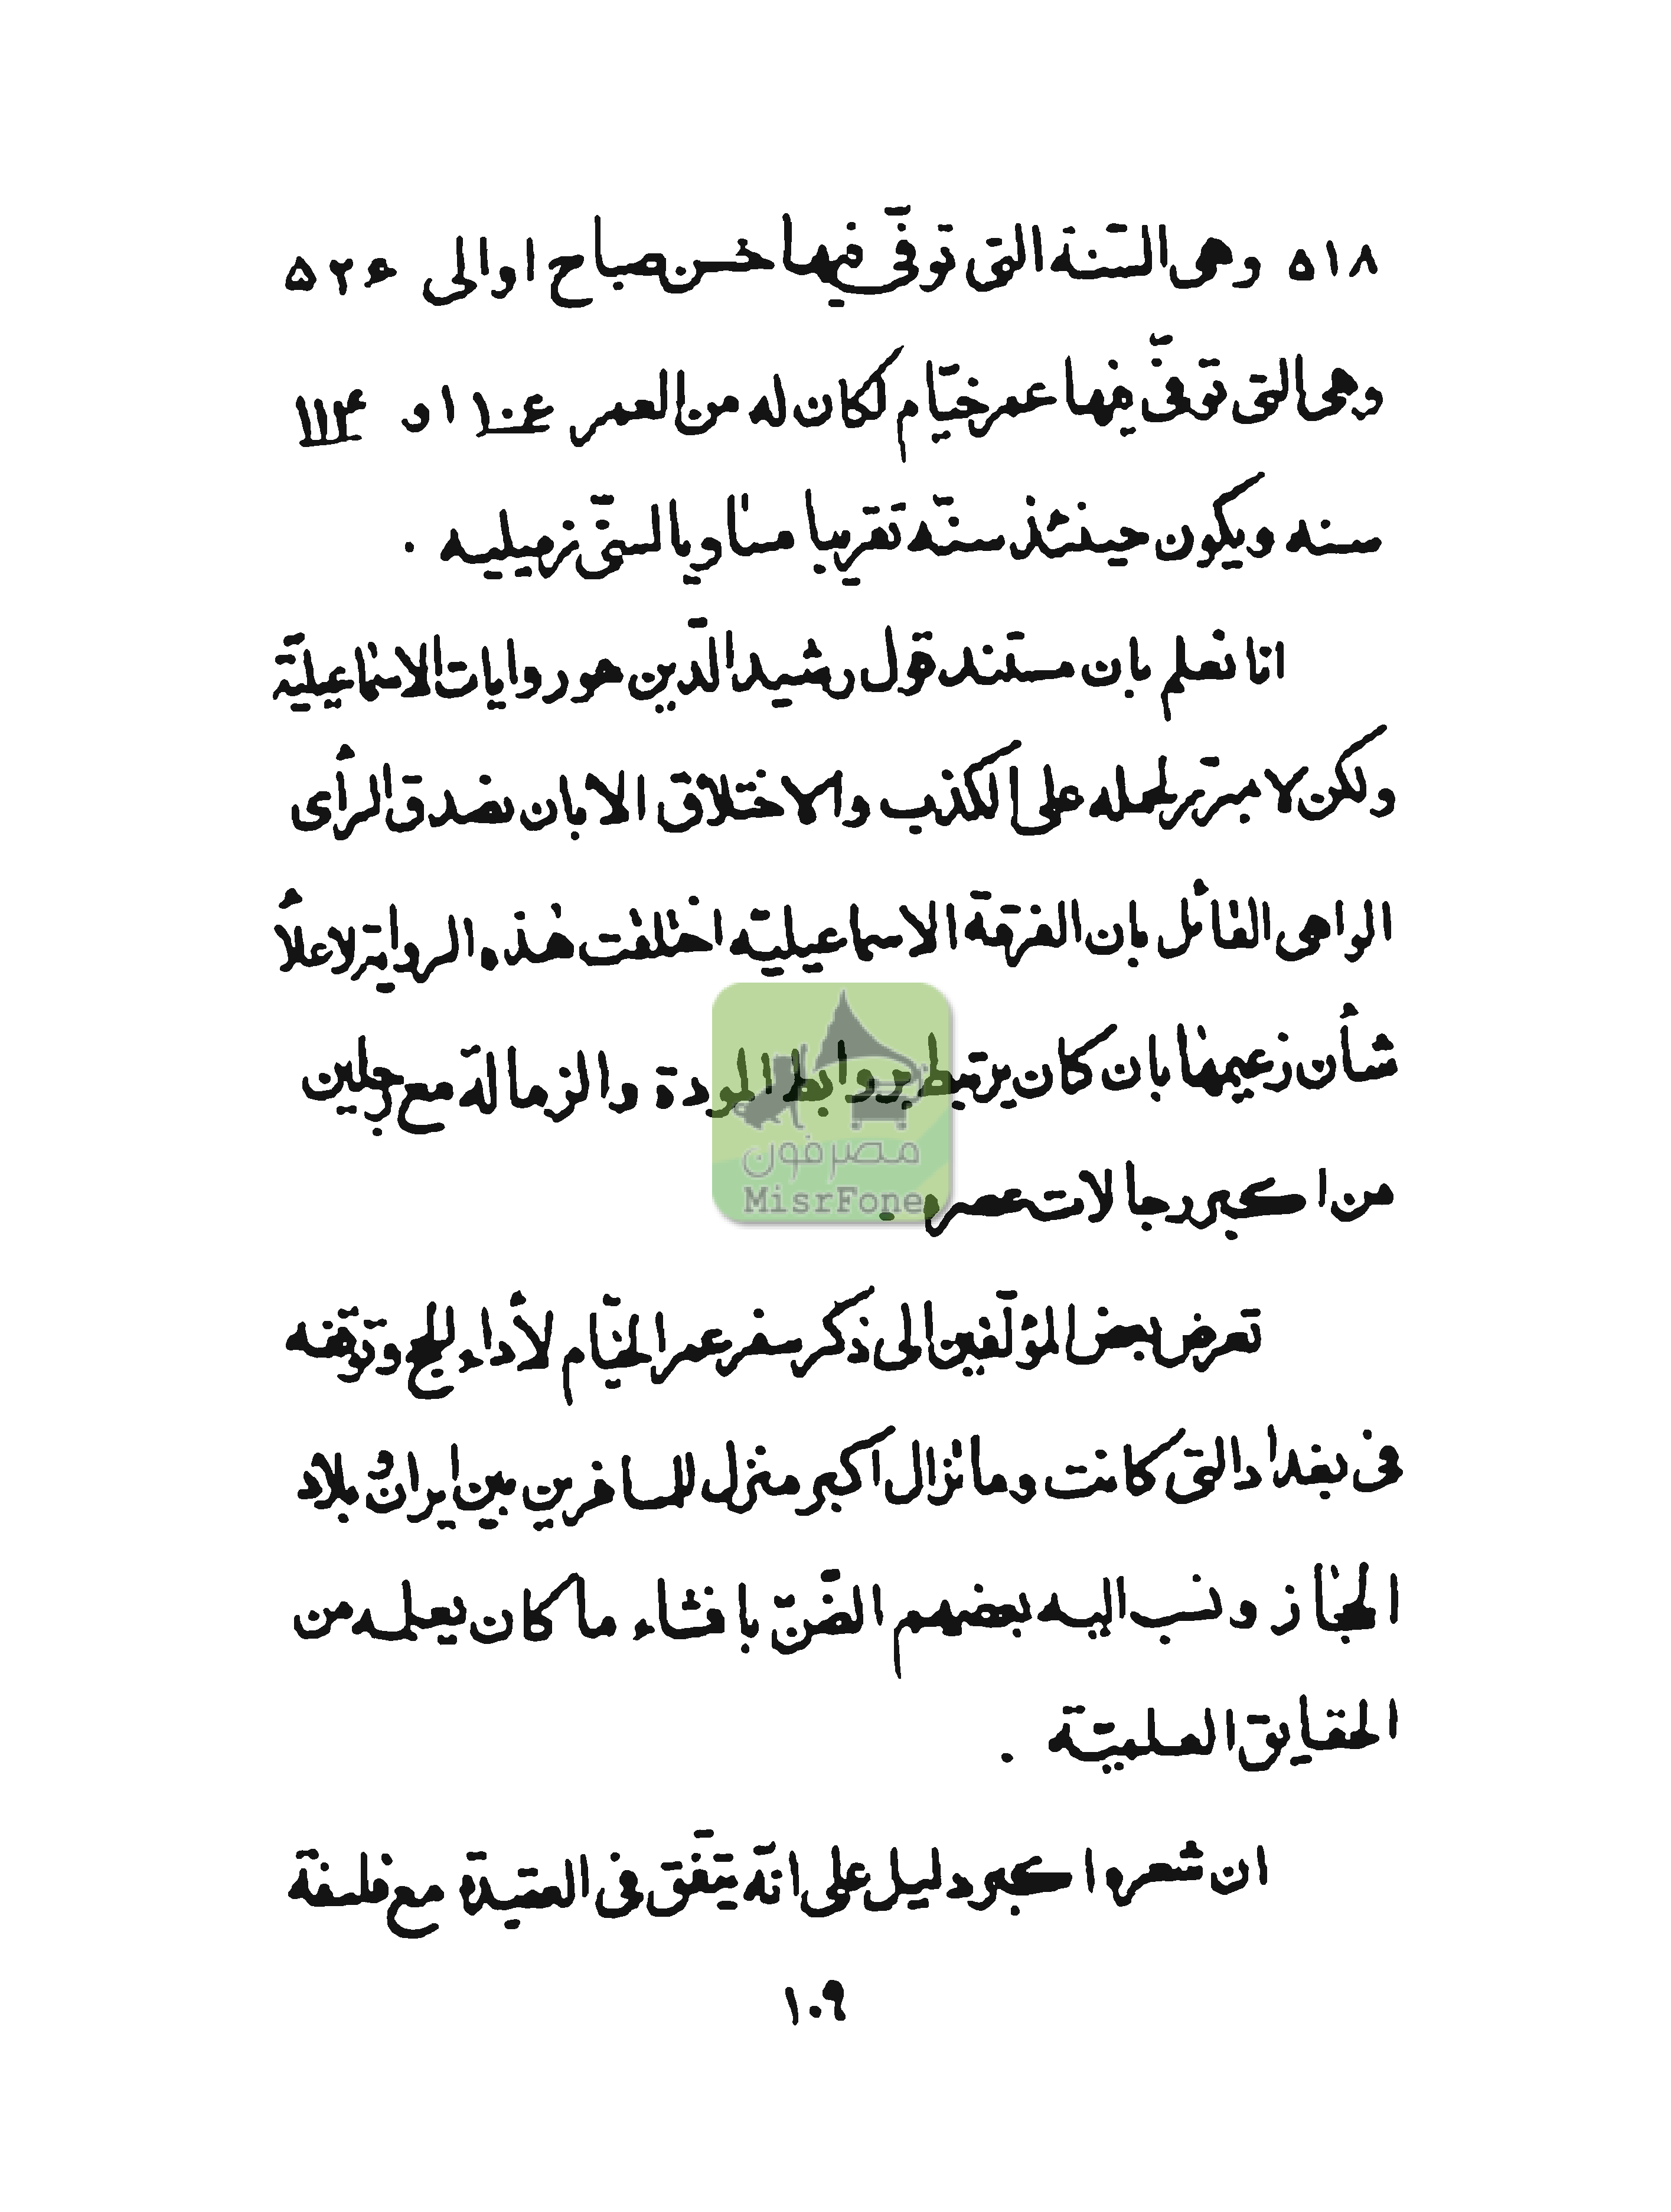 ٥١٨ وهى السّنة التى توفّى فيها حسن صباح او الى ۵۲۶
وهى التى توفّى فيها عمر خيّام لكان له من العمر
سنه ويكون حينئذ سنّه تقريبا مساويا لسنّى زميليه .
انا نعلم بان مستند قول رشيد الدّين هو روايات الاسماعيليّة
ولكن لا مبرّر لحمله على الكذب والاختلاق الا بان نصدق الرأى
الواهى القائل بان الفرقة الاسماعيليّه اختلقت هذه الرواية لاعلاً
شأن زعيمها بان كان يرتبط بروابط المودة والزمالة مع رجلين
من اكبر رجالات عصره .
تعرض بعض المؤلّفين الى ذكر سفر عمر الخيّام لأداء الحج وتوقفه
فى بغداد التى كانت وما تزال اكبر منزل للمسافرين بين ايران و بلاد
الحجاز ونسب اليه بعضهم الضّنّ بافشاء ما كان يعلمه من
الحقايق العلميّة .
ان شعره اكبر دليل على انّه يتّفق فى العقيدة مع فلسفة
١٠٩
مصرفون
MisrFone